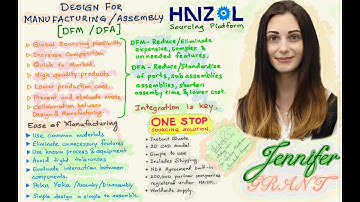 DESIGN FOR
MANUFACTURING/ASSEMBLY
[DFM/DFA]
Global Sourcing possibility
Increase Competition
Quick to Market
High quality products
Lower production cost.
Prevent and eliminate
Collaboration between
Design & Manufacturing
Ease of Manufacturing
Use Common materials
Eliminate unnecessary features
Use known process & equipment
Avoid tight tolerances
Evaluate interaction between
components.
Poka Yoke/Assembly/Disassembly
Simple design = simple to assemble.
HAIZOL
Sourcing Platform
DFM- Reduce/Eliminate
expensive, complex &
unneeded features.
DFA- Reduce/Standardise
of parts, sub assemblies
assemblies, shorten
assembly time & lower cost.
Integration is key.
ONE STOP
SOURCING SOLUTION.
Instant Quote.
3D CAD Model.
Simple to use
Includes Shipping
NDA Agreement built-in
partner companies
registered under HAIZOL
Worldwide supply.
Jennifer
GRANT